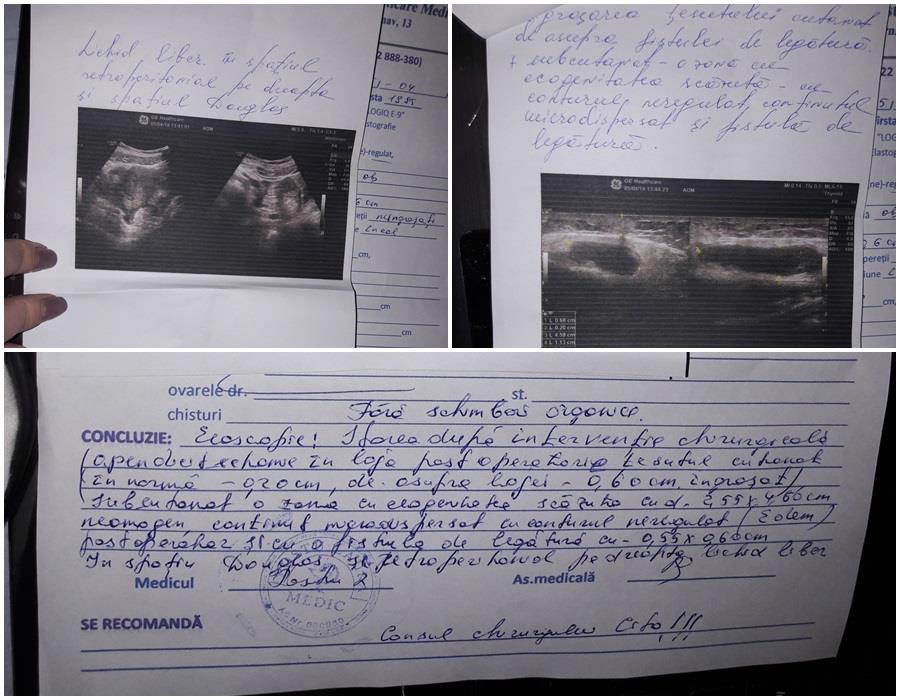 Lichid liber în spațiul
retroperitonial pe dreapta
și spațiul Douglas
GE Healthcare
05/04/18 13:41:01 AOM
icare Medi
nav, 13
2 888-380)
1-04
sta 1885
LOGIQ E-9"
stografie
e)-regulat,
ob
6 cm
eții neîngroșați
cm,
cm
cm
îngroșarea țesutului cutanat
de asupra fistulei de legătură.
+ subcutanat - o zonă cu
ecogenitatea scăzută - cu
conturul neregulat, conținutul
microdispersat și fistulă de
legătură.
GE Healthcare
05/04/18 13:44:23 AOM
1 L 0.68 cm
2 L 0.20 cm
3 L 4.59 cm
4 L 1.13 cm
22
"LOG
lastog
ne)-regu
ă ob
6 cm
pereții
iune
cm,
ovarele dr. st.
chisturi Fără schimbări organice.
CONCLUZIE: Ecoscopie! Starea după intervenție chirurgicală
(apendectomie în loja postoperatorie țesutul cutanat
în normă - 0,20 cm, de asupra lojei - 0,60 cm, îngroșat)
Subcutanat o zonă cu ecogenitate scăzută cu d - 2,55 x 4,60 cm
neomogen, conținut microdispersat cu conturul neregulat (Edem)
postoperator și cu o fistula de legătură cu - 0,55 x 0,60 cm
În spațiu Douglas și retroperitonial pe dreapta lichid liber
Medicul As.medicală
MEDIC
SE RECOMANDĂ Consul chirurgului Cito!!!